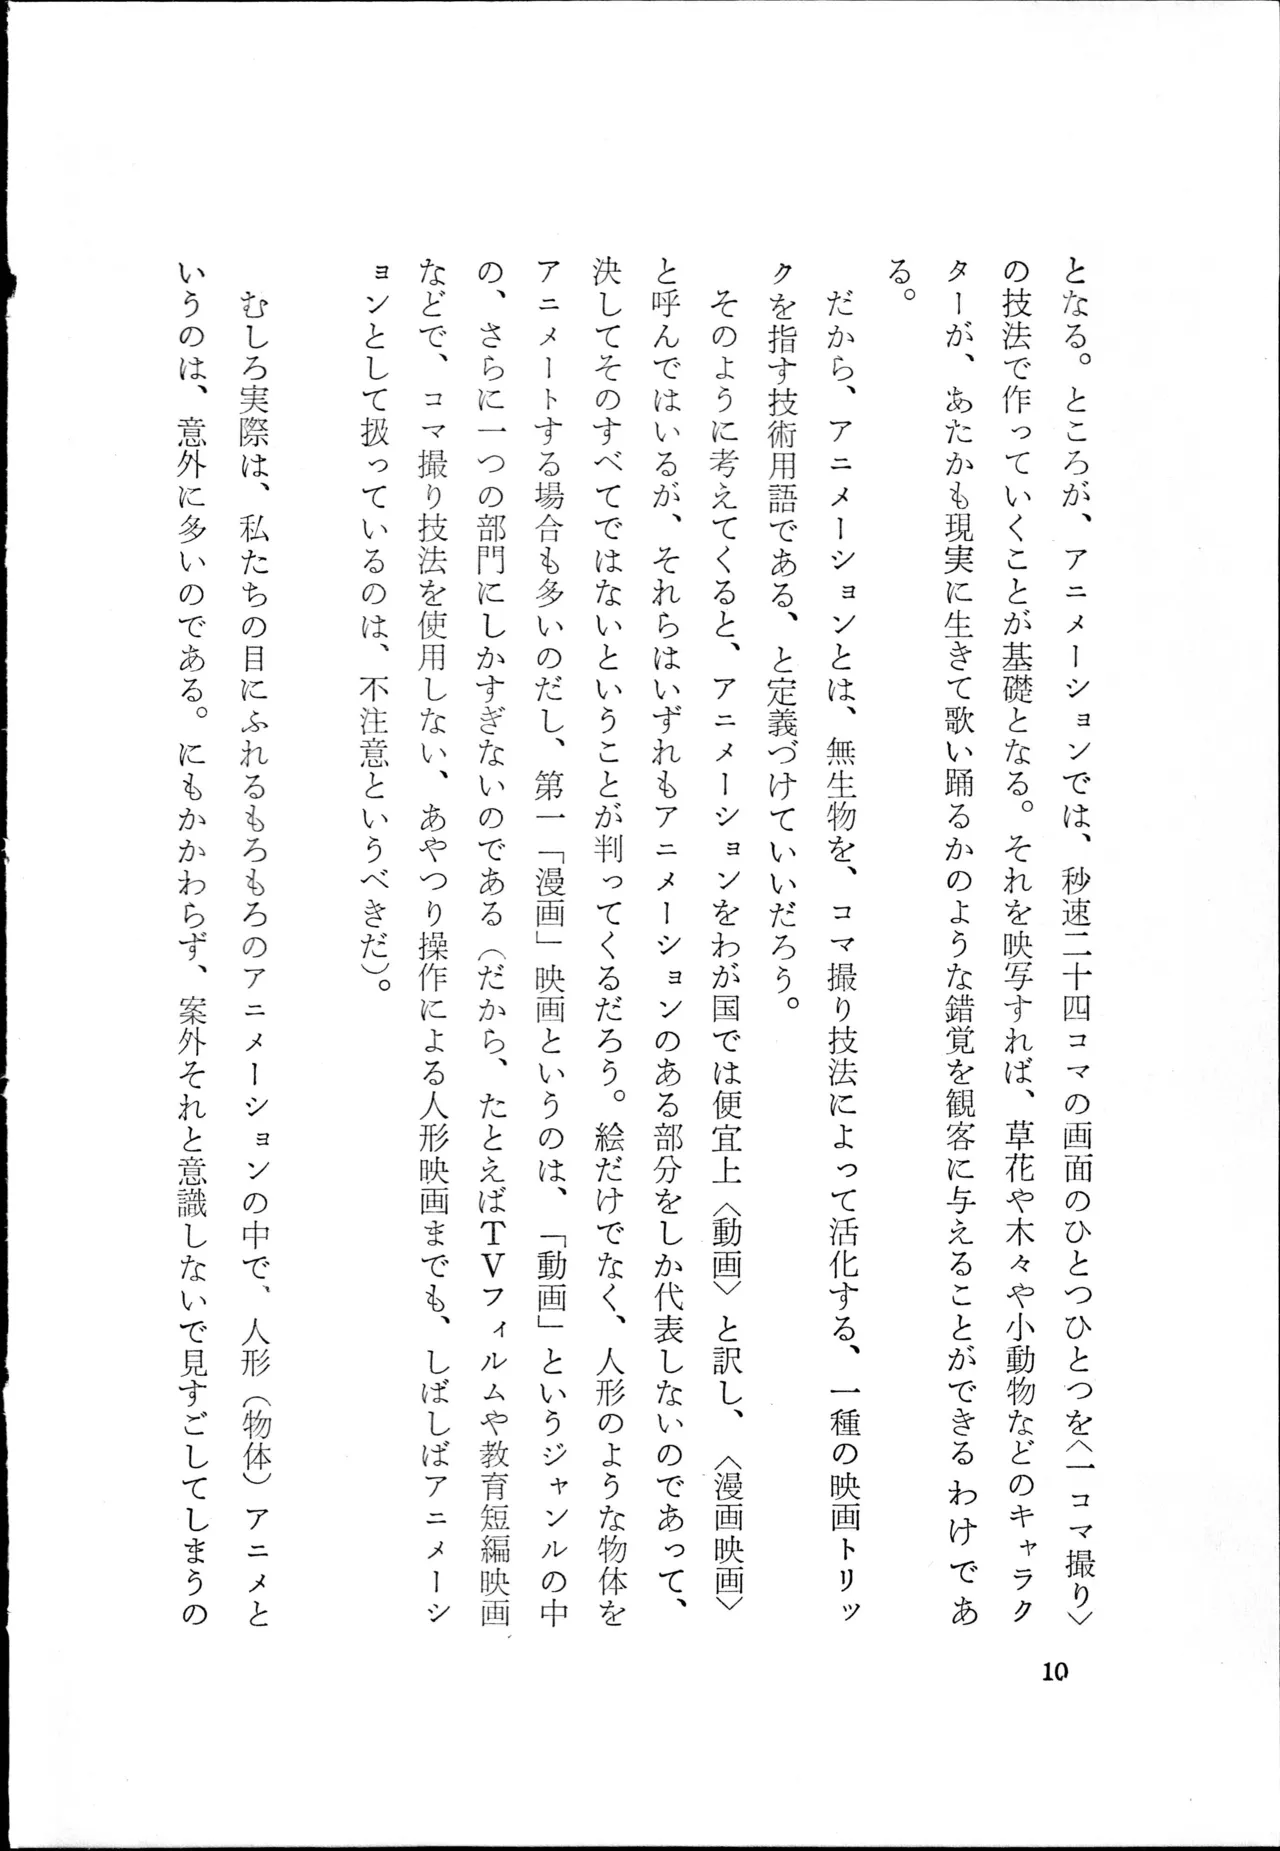 となる。ところが、アニメーションでは、秒速二十四コマの画面のひとつひとつを〈一コマ撮り〉
の技法で作っていくことが基礎となる。それを映写すれば、草花や木々や小動物などのキャラク
ターが、あたかも現実に生きて歌い踊るかのような錯覚を観客に与えることができるわけであ
る。
だから、アニメーションとは、無生物を、コマ撮り技法によって活化する、一種の映画トリッ
クを指す技術用語である、と定義づけていいだろう。
そのように考えてくると、アニメーションをわが国では便宜上〈動画〉と訳し、〈漫画映画〉
と呼んではいるが、それらはいずれもアニメーションのある部分をしか代表しないのであって、
決してそのすべてではないということが判ってくるだろう。絵だけでなく、人形のような物体を
アニメートする場合も多いのだし、第一「漫画」映画というのは、「動画」というジャンルの中
の、さらに一つの部門にしかすぎないのである（だから、たとえばTVフィルムや教育短編映画
などで、コマ撮り技法を使用しない、あやつり操作による人形映画までも、しばしばアニメーシ
ョンとして扱っているのは、不注意というべきだ）。
むしろ実際は、私たちの目にふれるもろもろのアニメーションの中で、人形（物体）アニメと
いうのは、意外に多いのである。にもかかわらず、案外それと意識しないで見すごしてしまうの
10